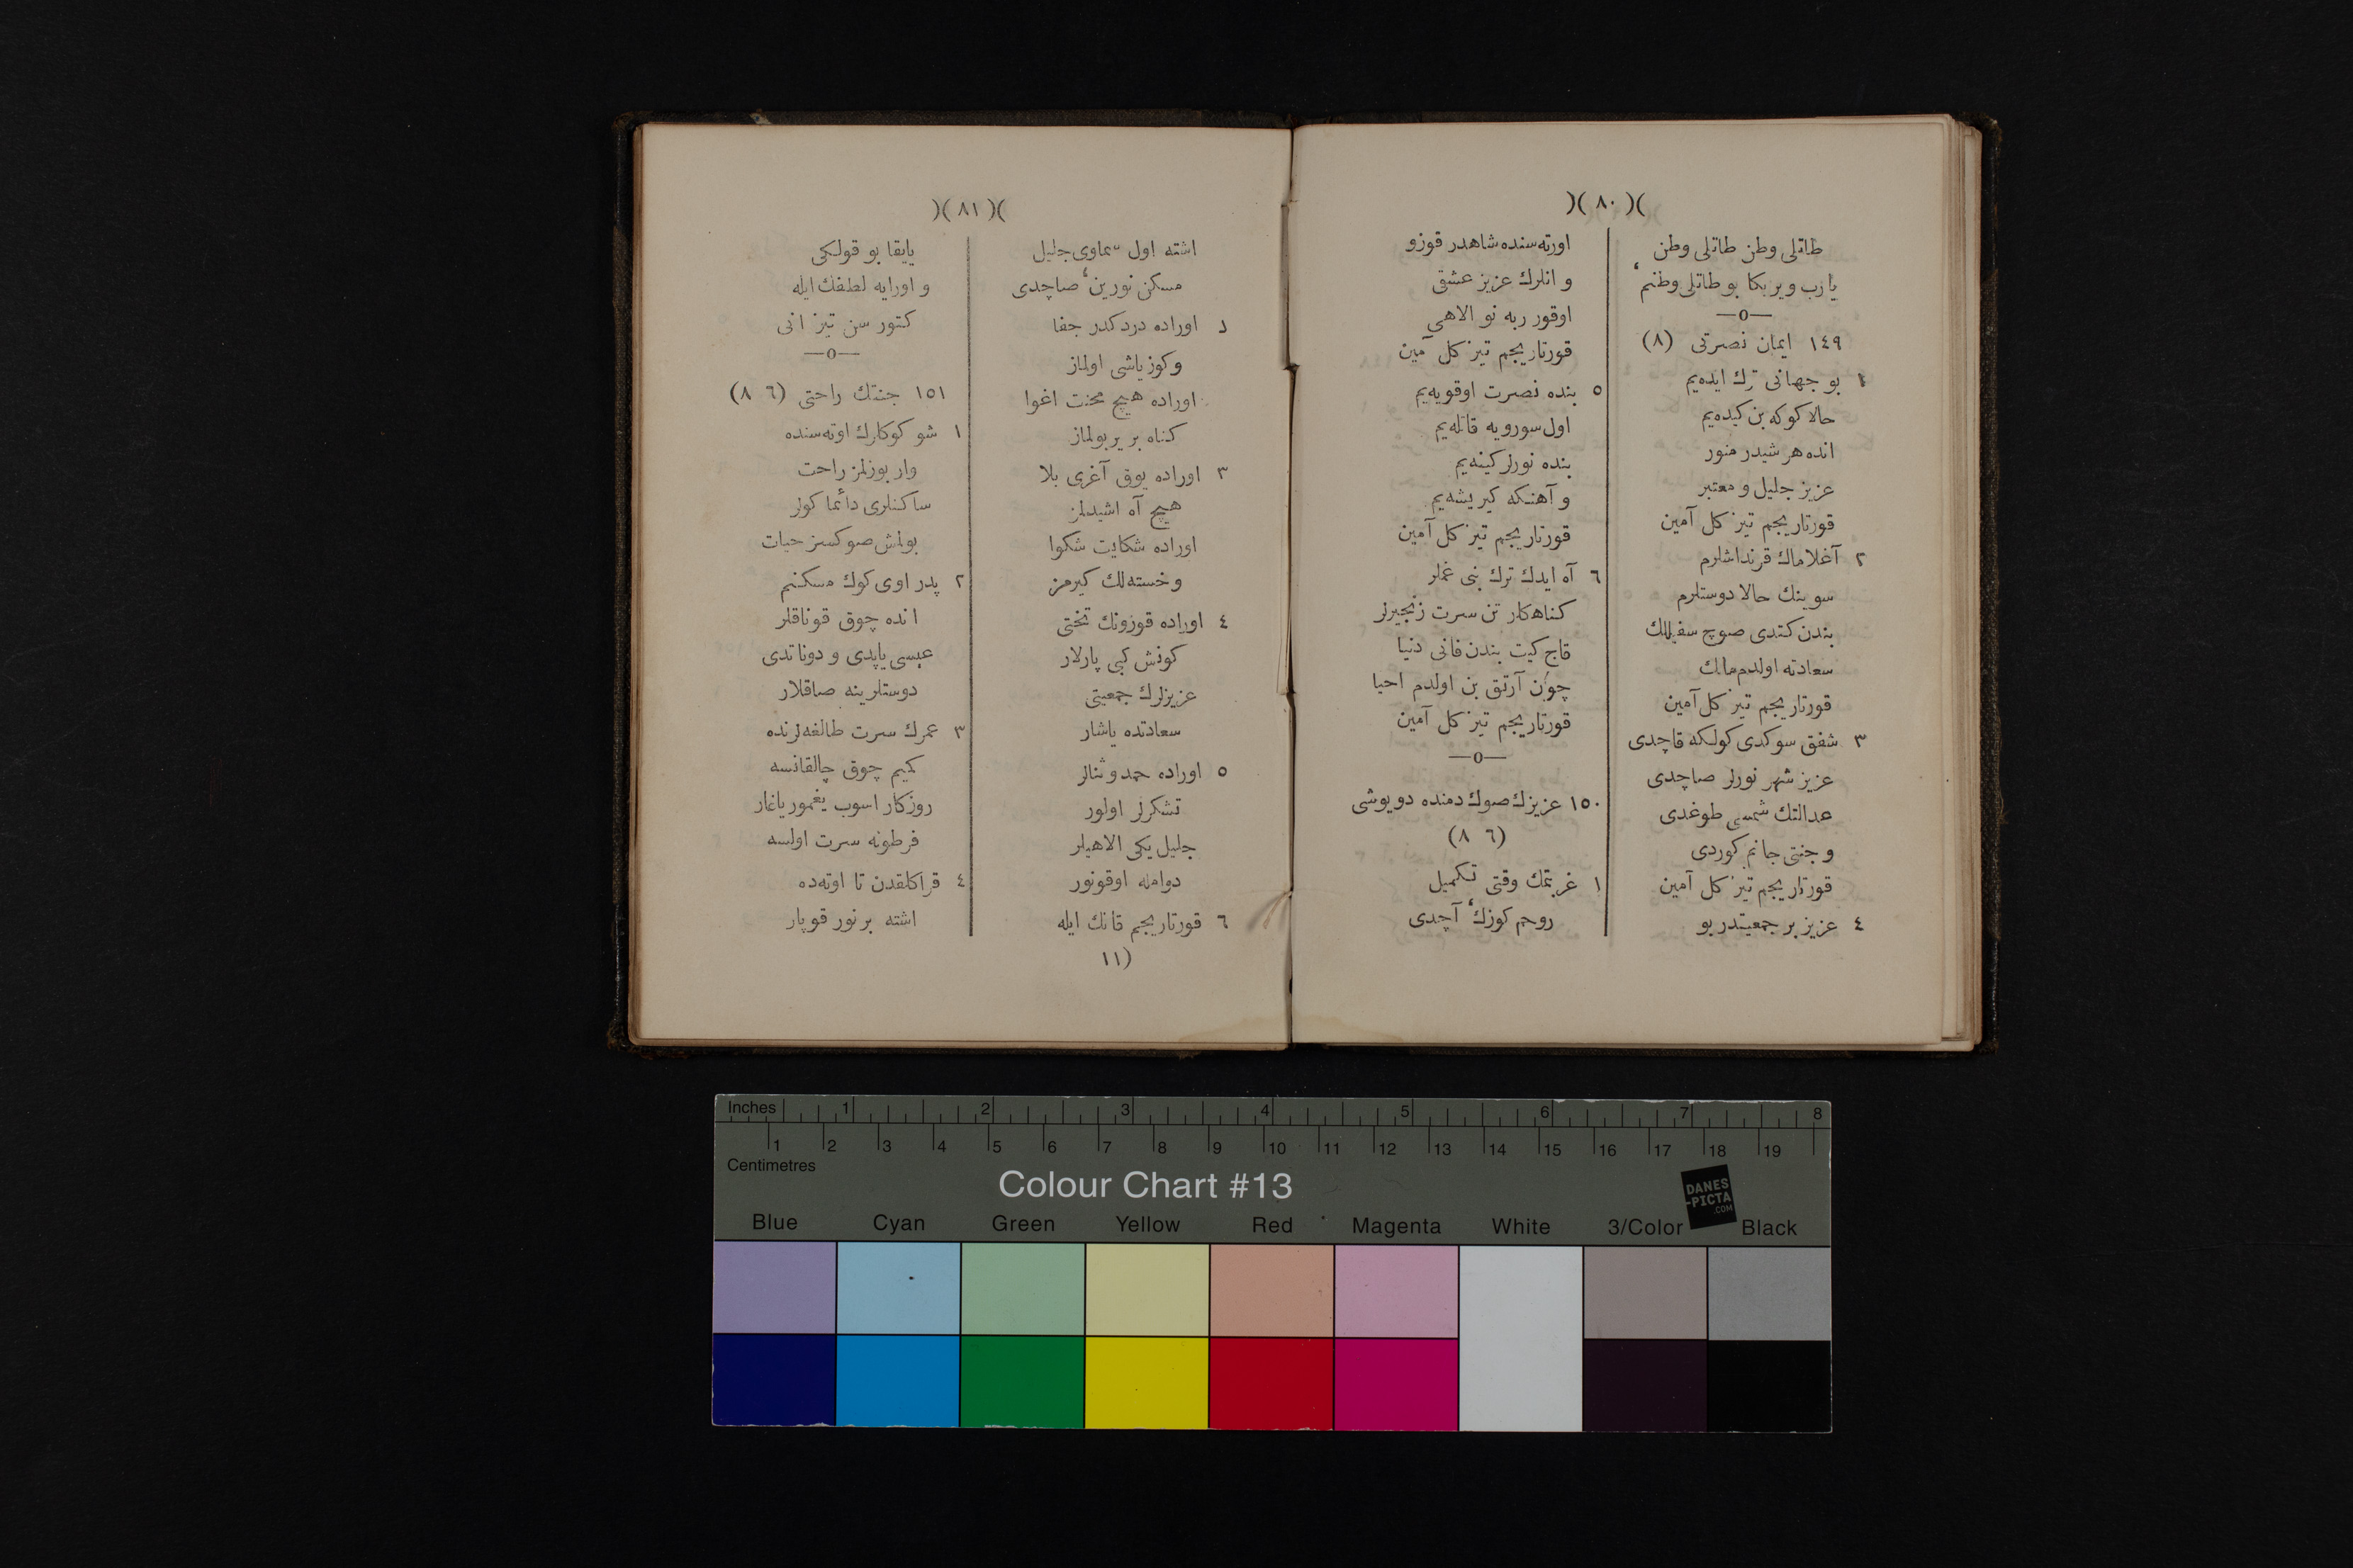 )( ٨٠ )(
طاتلی وطن طاتلی وطن
یا رب ویر بكا بو طاتلی وطنم
—o—
١٤٩ ایمان نصرتی (٨)
١ بو جهانی ترك ایده‌یم
حالا كوكه بن كیده‌یم
انده هر شیدر منور
عزیز جلیل و معتبر
قورتاریجم تیز كل آمین
٢ آغلاماك قرنداشلرم
سوینك حالا دوستلرم
بندن كتدی صوچ سفیللك
سعادته اولدم مالك
قورتاریجم تیز كل آمین
٣ شفق سوكدی كولكه قاچدی
عزیز شهر نورلر صاچدی
عدالتك شمسی طوغدی
و جنتی جانم كوردی
قورتاریجم تیز كل آمین
٤ عزیز بر جمعیتدر بو
اورته‌سنده شاهدر قوزو
و انلرك عزیز عشقی
اوقور ربه نو الاهی
قورتاریجم تیز كل آمین
٥ بنده نصرت اوقویه‌یم
اول سورویه قاتله‌یم
بنده نورلر كینه‌یم
و آهنكه كیریشه‌یم
قورتاریجم تیز كل آمین
٦ آه ایدك ترك بنی غملر
كناهكار تن سرت زنجیرلر
قاچ كیت بندن فانی دنیا
چون آرتق بن اولدم احیا
قورتاریجم تیز كل آمین
—o—
١٥٠ عزیزك صوك دمنده دویوشی
(٨ ٦)
١ غربتمك وقتی تكمیل
روحم كوزك آچدی
)( ٨١ )(
اشته اول سماوی جلیل
مسكن نورین صاچدی
٢ اوراده درد كدر جفا
و كوز یاشی اولماز
اوراده هیچ محنت اغوا
كناه بر یر بولماز
٣ اوراده یوق آغری بلا
هیچ آه اشیدلمز
اوراده شكایت شكوا
و خسته‌لك كیرمز
٤ اوراده قوزونك تختی
كونش كبی پارلار
عزیزلرك جمعیتی
سعادتده یاشار
٥ اوراده حمد و ثنالر
تشكرلر اولور
جلیل یكی الاهیلر
دوامله اوقونور
٦ قورتاریجم قانك ایله
(١١
یایقا بو قولكی
و اورایه لطفك ایله
كتور سن تیز انی
—o—
١٥١ جنتك راحتی (٨ ٦)
١ شو كوكلرك اوته‌سنده
وار بوزلمز راحت
ساكنلری دائما كولر
بولمش صوكسز حیات
٢ پدر اوی كوك مسكنم
انده چوق قوناقلر
عیسی یاپدی و دوناتدی
دوستلرینه صاقلار
٣ عمرك سرت طالغه‌لرنده
كمیم چوق چالقانسه
روزكار اسوب یغمور یاغار
فرطونه سرت اولسه
٤ قراكلقدن تا اوته‌ده
اشته بر نور قوپار
Inches 1 2 3 4 5 6 7 8
1 2 3 4 5 6 7 8 9 10 11 12 13 14 15 16 17 18 19
Centimetres
Colour Chart #13
DANES
-PICTA
.COM
Blue Cyan Green Yellow Red Magenta White 3/Color Black